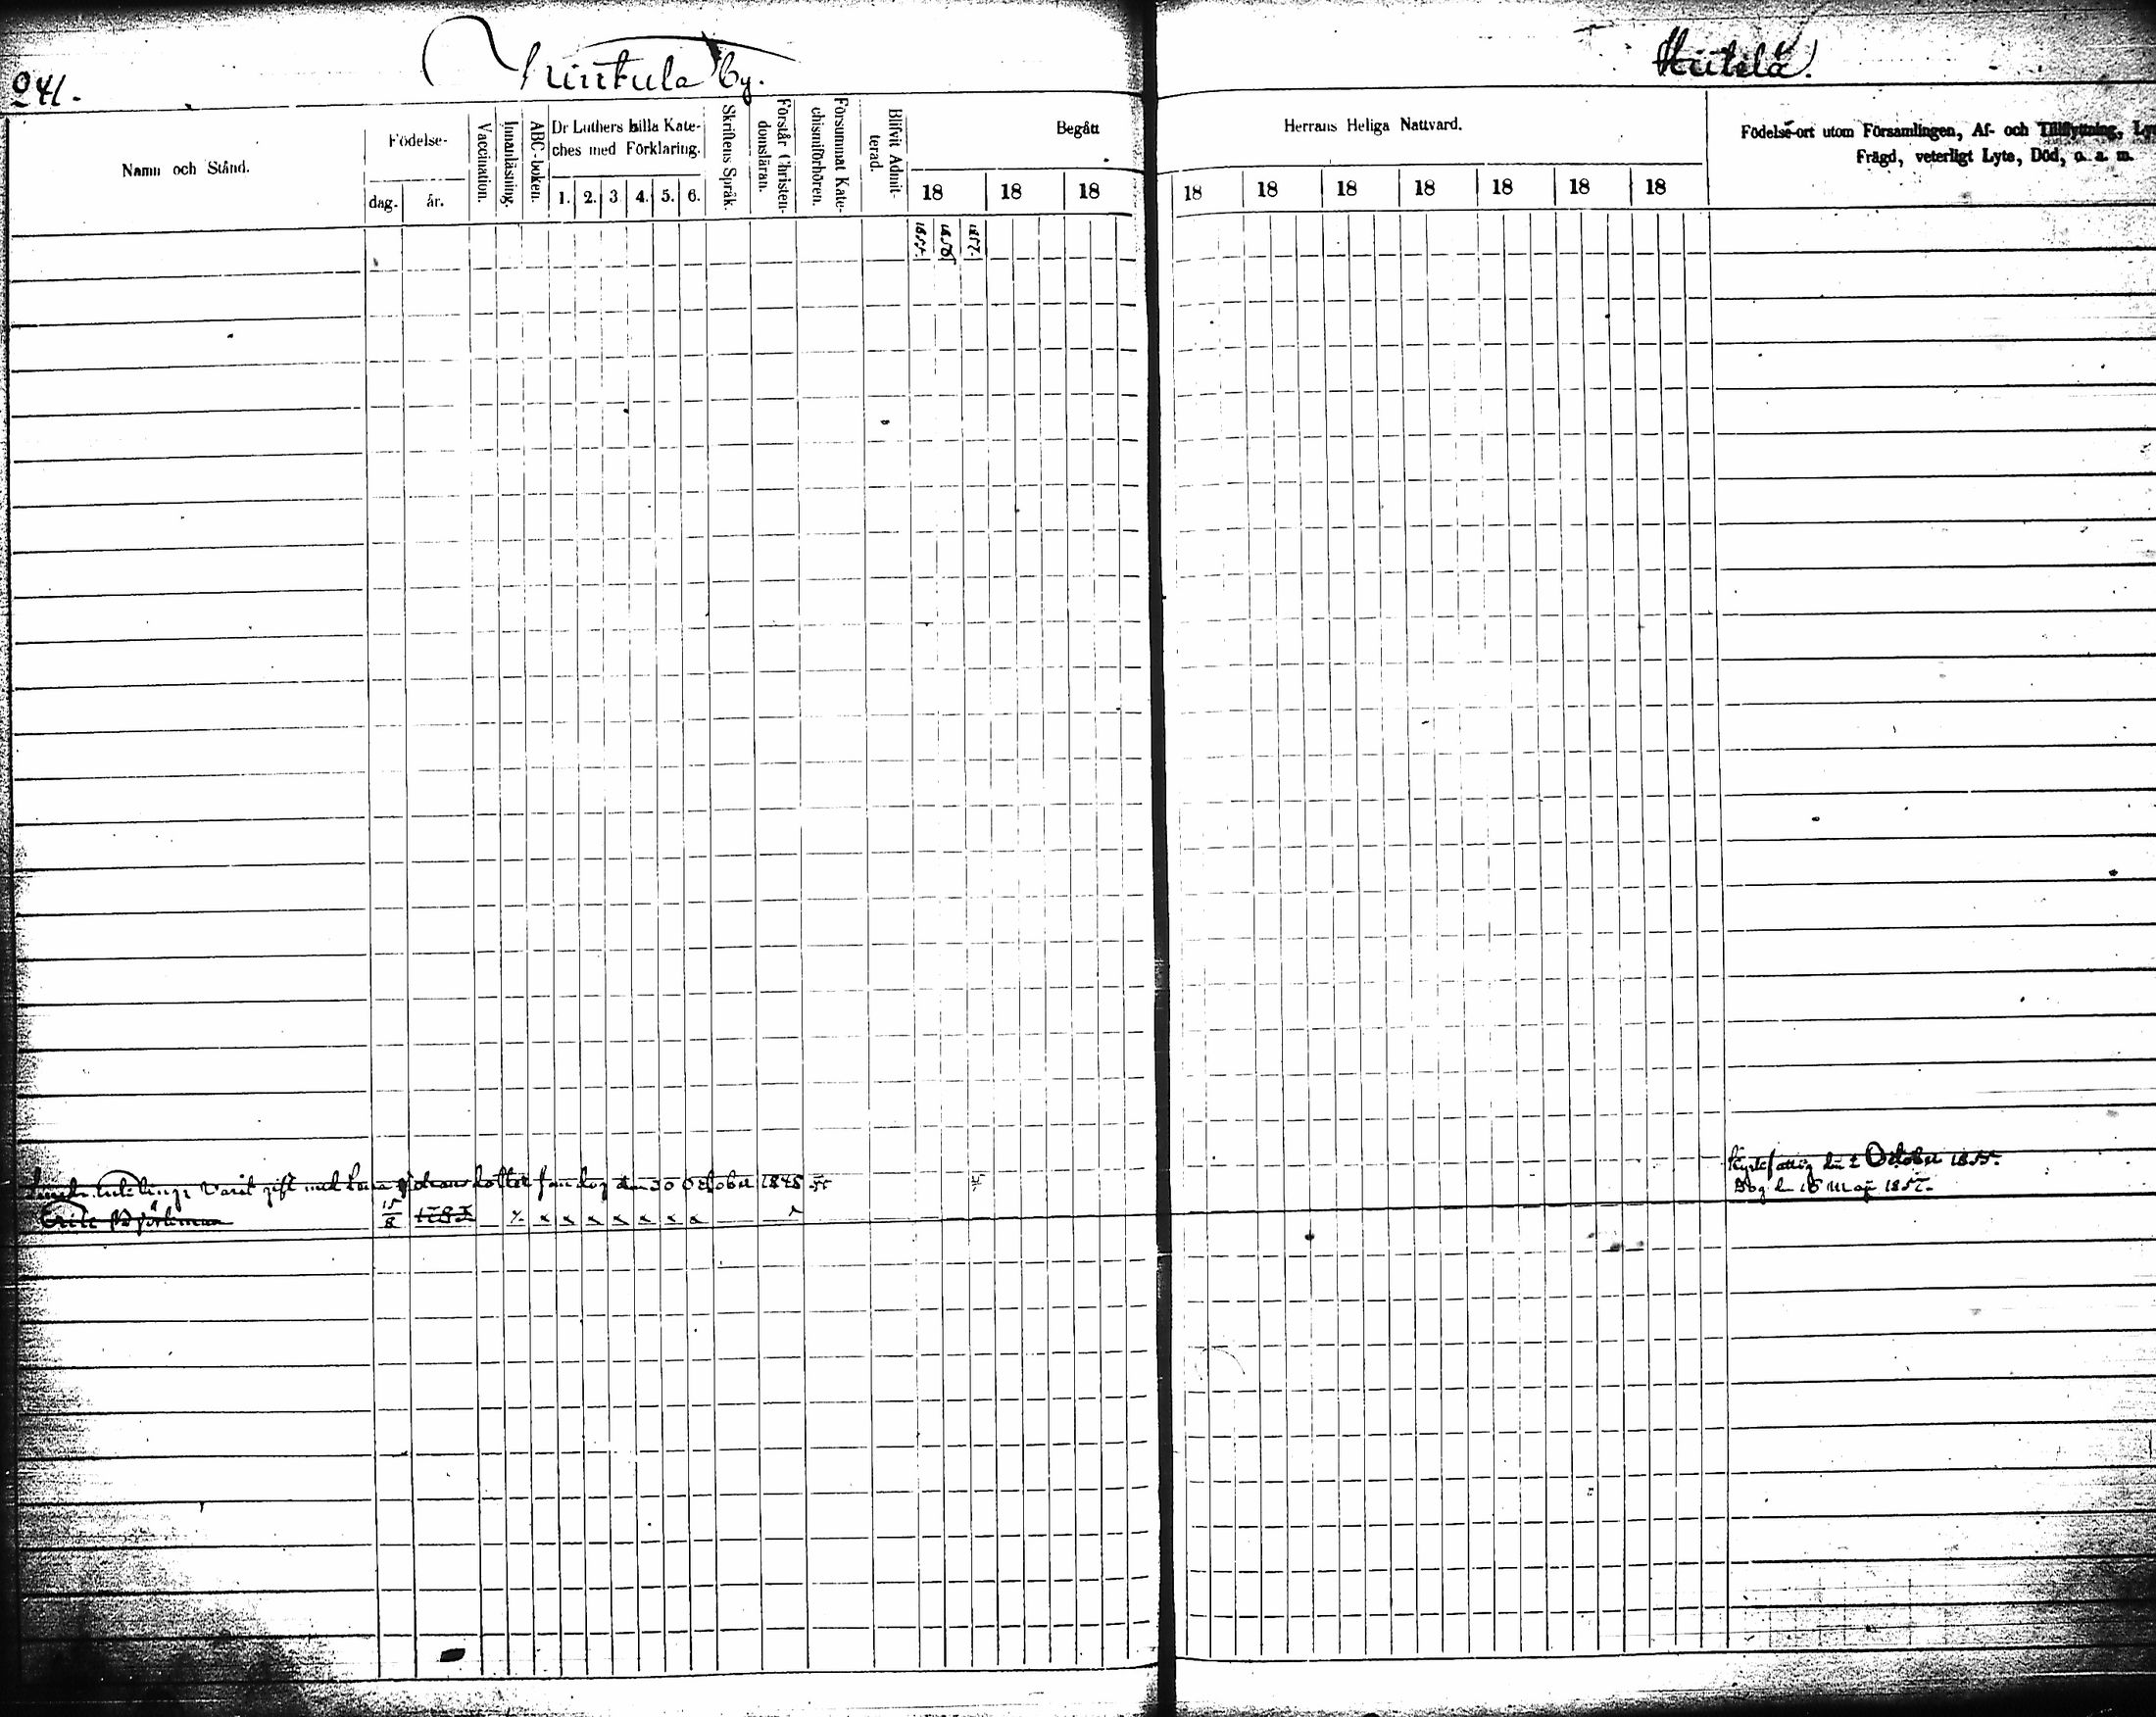 241.
by.
Hiitelä.
Namn och Stånd.
Födelse-
dag.
år.
Vaccination.
Innanläsning.
ABC-boken.
Dr Luthers lilla Kate-
ches med Förklaring.
1. 2. 3 4. 5. 6.
Skriftens Språk.
Förstår Christen-
domsläran.
Försummat Kate-
chismiförhören.
Blifvit Admit-
terad.
Begått
18 18 18
Herrans Heliga Nattvard.
18 18 18 18 18 18 18
Födelse-ort utom Församlingen, Af- och Tillflyttning,
Frägd, veterligt Lyte, Död, o. a. m.
1855. 1856 1857.
Varit gift med dotter den 30 October 1848
Erik Björkman 15/8
den 2 October 1855.
Dog d. 16 Maji 1857.